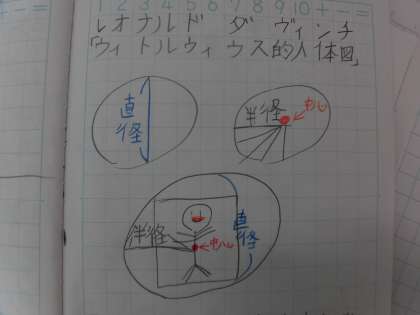 1 2 3 4 5 6 7 8 9 10 + − =
レオナルド ダ ヴィンチ
「ウィトルウィウス的人体図」
直径
半径
中心
半径
中心
直径